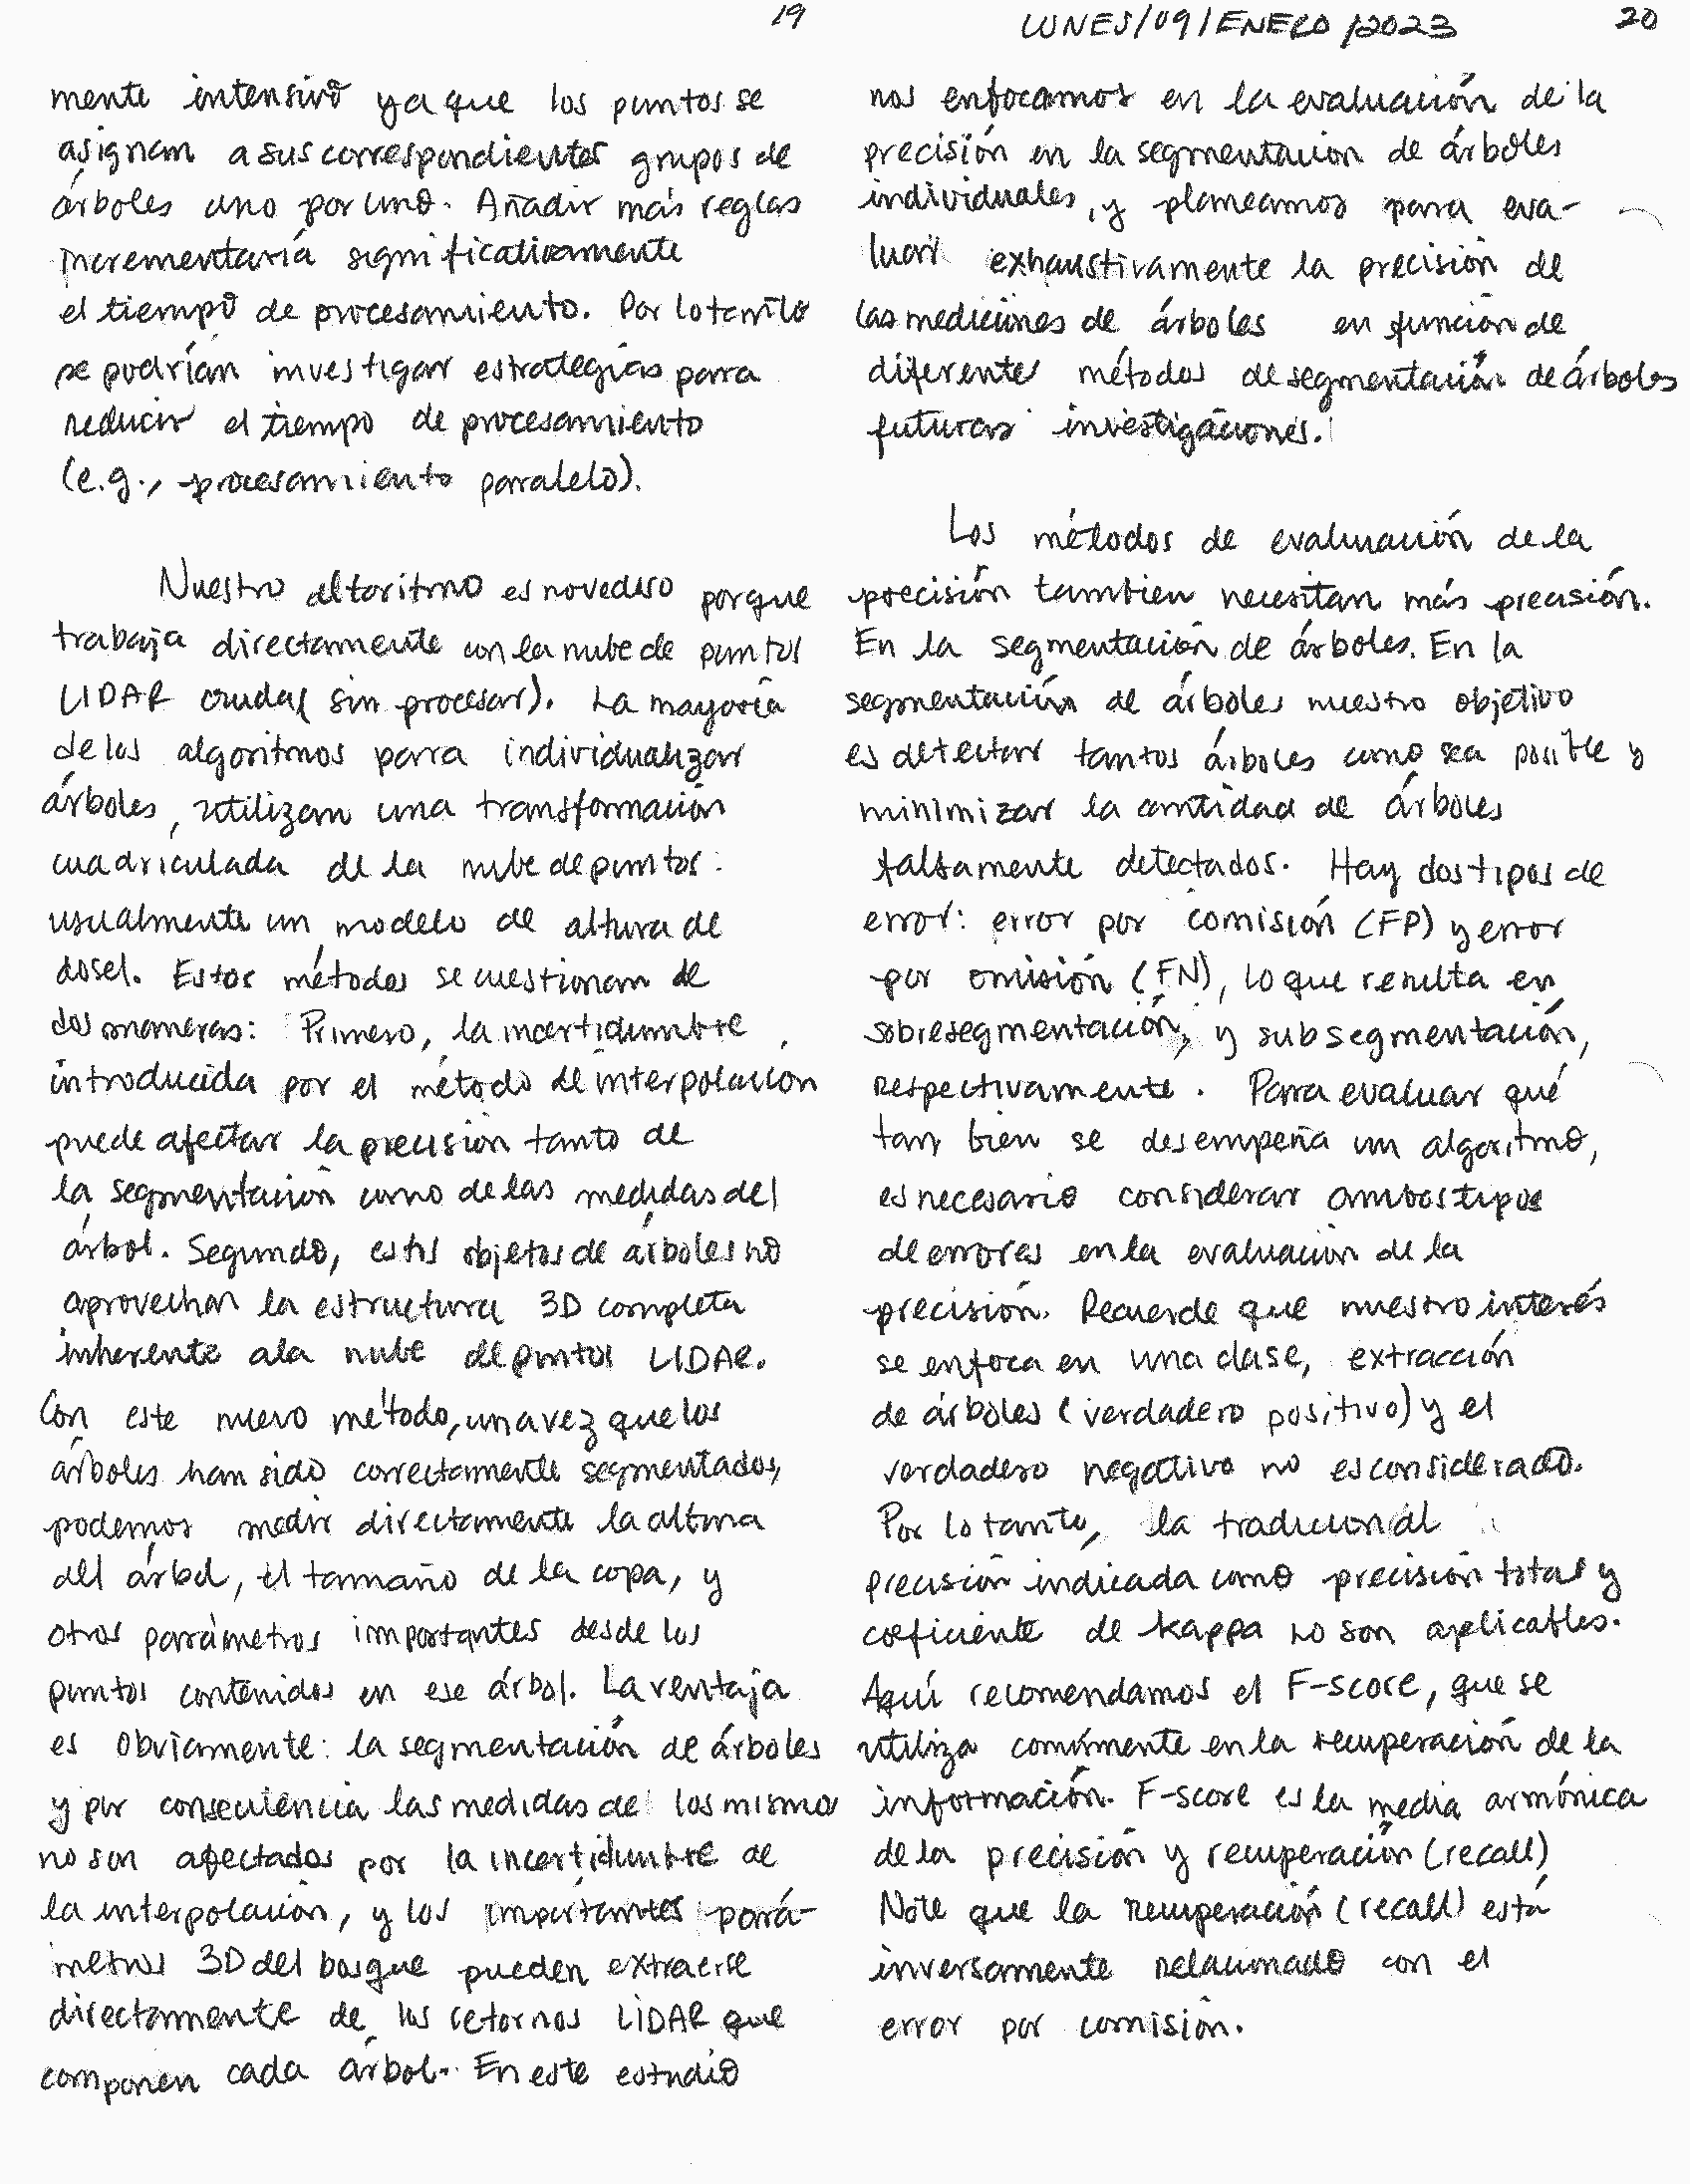 19
mente intensivo ya que los puntos se
asignan a sus correspondientes grupos de
árboles uno por uno. Añadir más reglas
incrementaría significativamente
el tiempo de procesamiento. Por lo tanto
se podrían investigar estrategias para
reducir el tiempo de procesamiento
(e.g., procesamiento paralelo).
Nuestro altoritmo es novedoso porque
trabaja directamente con la nube de puntos
LIDAR cruda( sin procesar). La mayoría
de los algoritmos para individualizar
árboles, utilizan una transformación
cuadriculada de la nube de puntos:
usualmente un modelo de altura de
dosel. Estos métodos se cuestionan de
dos maneras: Primero, la incertidumbre
introducida por el método de interpolación
puede afectar la precisión tanto de
la segmentación como de las medidas del
árbol. Segundo, estos objetos de árboles no
aprovechan la estructura 3D completa
inherente a la nube de puntos LIDAR.
Con este nuevo método, una vez que los
árboles han sido correctamente segmentados,
podemos medir directamente la altura
del árbol, el tamaño de la copa, y
otros parámetros importantes desde los
puntos contenidos en ese árbol. La ventaja
es obviamente: la segmentación de árboles
y por consecuencia las medidas de los mismos
no son afectados por la incertidumbre de
la interpolación, y los importantes pará-
metros 3D del bosque pueden extraerse
directamente de los retornos LiDAR que
componen cada árbol. En este estudio
LUNES/09/ENERO/2023 20
nos enfocamos en la evaluación de la
precisión en la segmentación de árboles
individuales, y planeamos para eva-
luar exhaustivamente la precisión de
las mediciones de árboles en función de
diferentes métodos de segmentación de árboles
futuras investigaciones.
Los métodos de evaluación de la
precisión tambien necesitan más precisión.
En la segmentación de árboles. En la
segmentación de árboles nuestro objetivo
es detectar tantos árboles como sea posible y
minimizar la cantidad de árboles
falsamente detectados. Hay dos tipos de
error: error por comisión (FP) y error
por omisión (FN), lo que resulta en
sobresegmentación, y subsegmentación,
respectivamente. Para evaluar qué
tan bien se desempeña un algoritmo,
es necesario considerar ambos tipos
de errores en la evaluación de la
precisión. Recuerde que nuestro interés
se enfoca en una clase, extracción
de árboles (verdadero positivo) y el
verdadero negativo no es considerado.
Por lo tanto, la tradicional
precisión indicada como precisión total y
coeficiente de kappa no son aplicables.
Aquí recomendamos el F-score, que se
utiliza comúnmente en la recuperación de la
información. F-score es la media armónica
de la precisión y recuperación (recall)
Note que la recuperación (recall) está
inversamente relacionado con el
error por comisión.